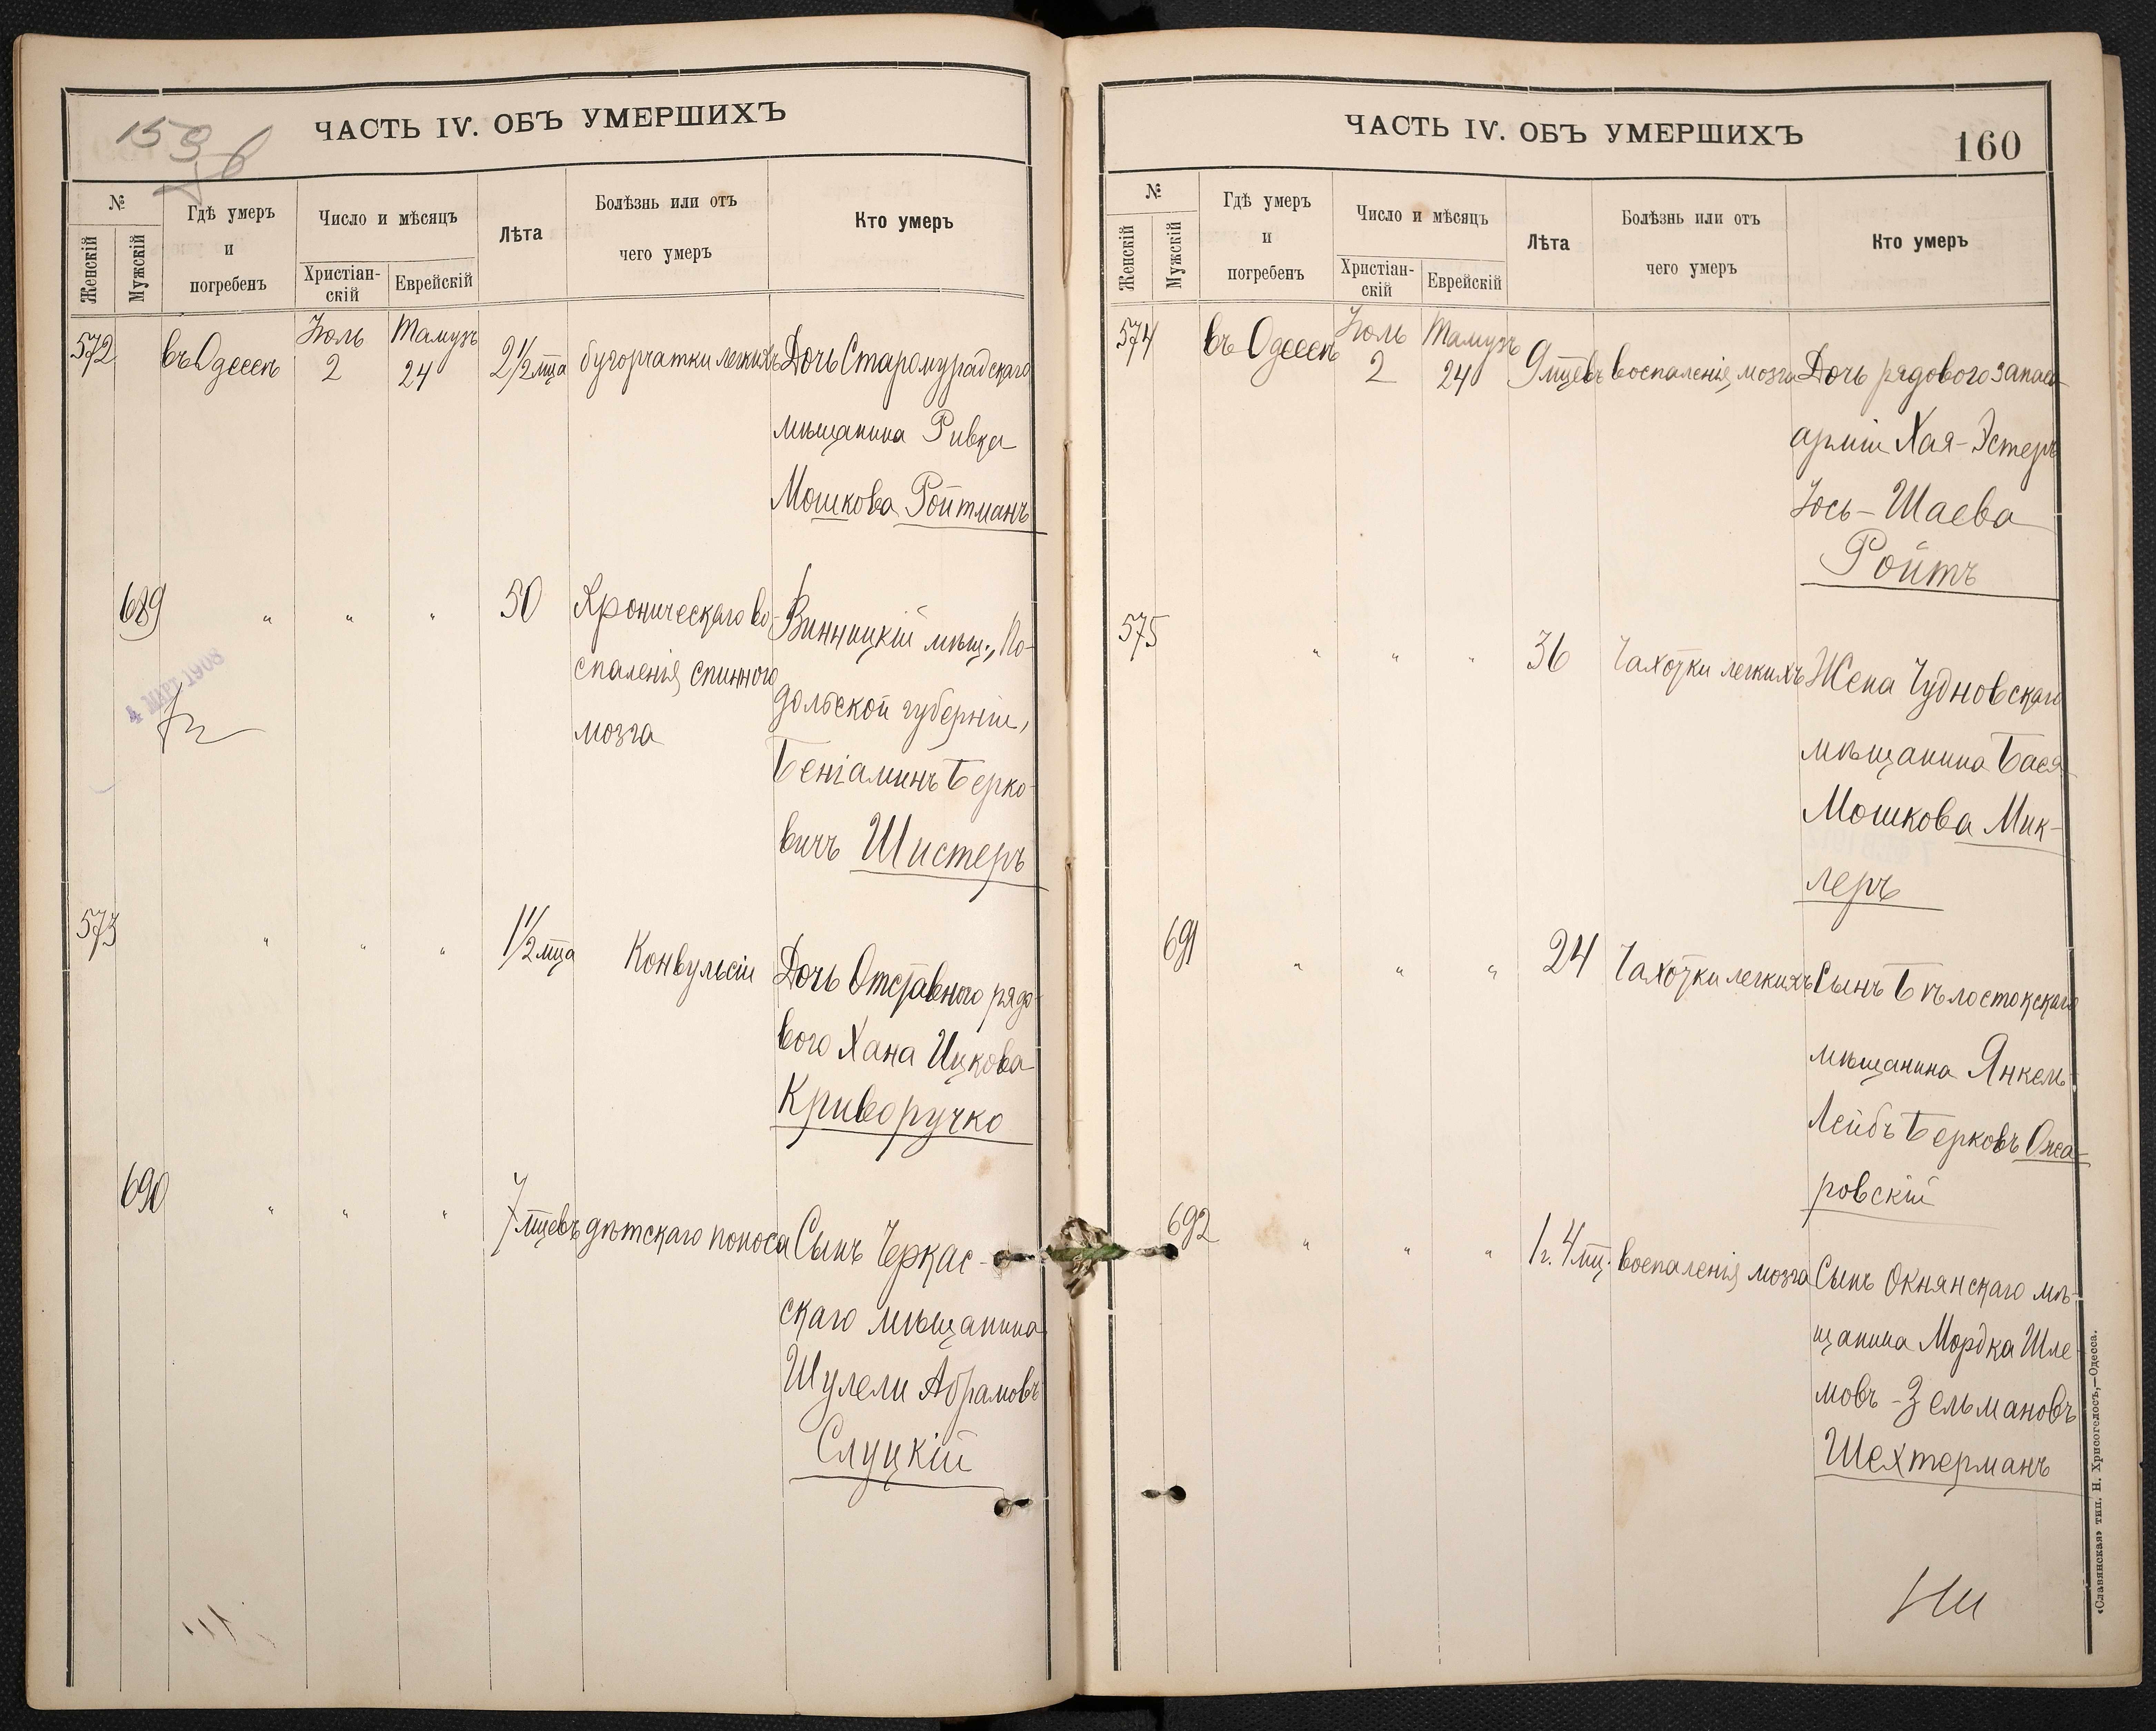 153 об
ЧАСТЬ IV. ОБЪ УМЕРШИХЪ
№
Женскій
Мужскій
Гдѣ умеръ
и
погребенъ
Число и мѣсяцъ
Христіан-
скій
Еврейскій
Лѣта
Болѣзнь или отъ
чего умеръ
Кто умеръ
572 въ Одессѣ Іюль 2 Тамузъ 24 2 1/2 мца бугорчатки легкихъ Дочь Старомурадскаго
мѣщанина Ривка
Мошкова Ройтманъ
689 " " " 50 Хроническаго во- Винницкій мѣщ., По-
спаленія спинного дольской губерніи,
мозга
Беніаминъ Берко-
вичъ Шистеръ
4 МАРТ 1908
573 " " " 1 1/2 мца Конвульсіи Дочь Отставного рядо-
вого Хана Ицкова
Криворучко
690 " " " 7 мцевъ дѣтскаго поноса Сынъ Черкас-
скаго мѣщанина
Шулели Абрамовъ
Слуцкій
ЧАСТЬ IV. ОБЪ УМЕРШИХЪ
160
№
Женскій
Мужскій
Гдѣ умеръ
и
погребенъ
Число и мѣсяцъ
Христіан-
скій
Еврейскій
Лѣта
Болѣзнь или отъ
чего умеръ
Кто умеръ
574 въ Одессѣ Іюль 2 Тамузъ 24 9 мцевъ воспаленія мозга Дочь рядового запаса
арміи Хая-Эстеръ
Іось-Шаева
Ройтъ
575 " " " 36 Чахотки легкихъ Жена Чудновскаго
мѣщанина Бася
Мошкова Мик-
леръ
691 " " " 24 Чахотки легкихъ Сынъ Бѣлостокскаго
мѣщанина Янкель-
Лейбъ Берковъ Ожа-
ровскій
692 " " " 1 г. 4 мц. воспаленія мозга Сынъ Окнянскаго мѣ-
щанина Мордка Шле-
мовъ-Зельмановъ
Шехтерманъ
«Славянская» тип. Н. Хрисогелосъ,—Одесса.